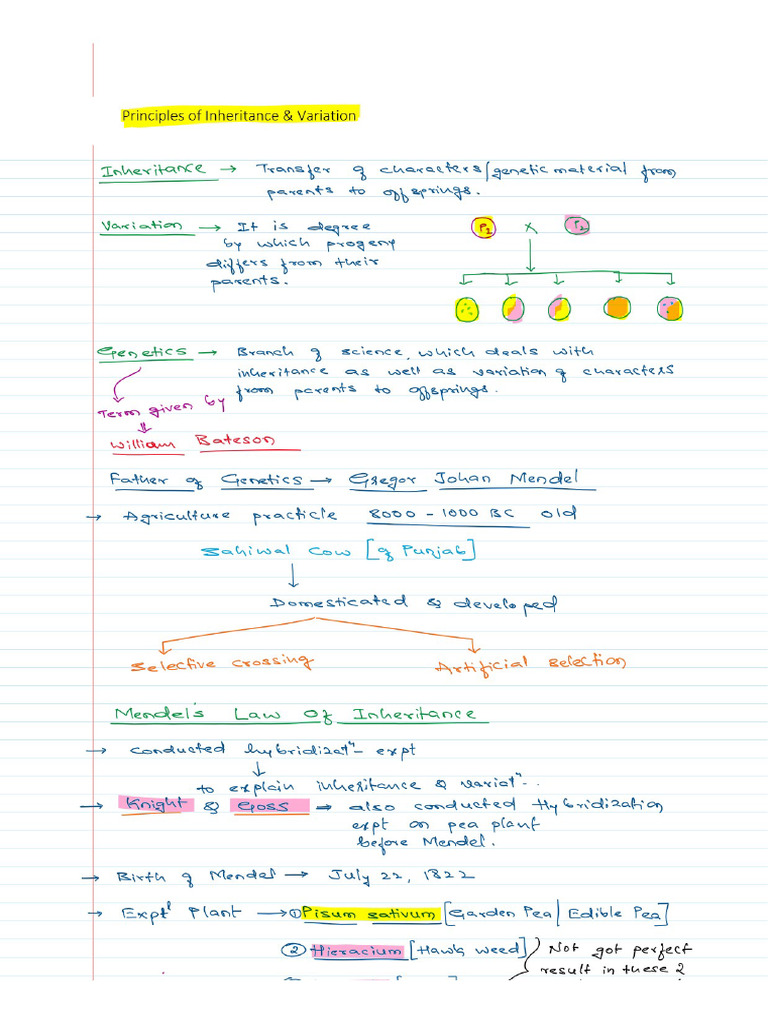 Principles of Inheritance & Variation
Inheritance → Transfer of characters/genetic material from
parents to offsprings.
Variation → It is degree
by which progeny
differs from their
parents.
P1 x P2
Genetics → Branch of science, which deals with
inheritance as well as variation of characters
from parents to offsprings.
Term given by
William Bateson
Father of Genetics → Gregor Johan Mendel
→ Agriculture practicle 8000 - 1000 BC old
Sahiwal Cow [of Punjab]
Domesticated & developed
Selective crossing Artificial selection
Mendel's Law Of Inheritance
→ conducted hybridizatn- expt
to explain inheritance & variatn..
→ Knight & Goss ⇒ also conducted Hybridization
expt on pea plant
before Mendel.
→ Birth of Mendel → July 22, 1822
→ Exptl Plant → ① Pisum sativum [Garden Pea | Edible Pea]
② Hieracium [Hawk weed] Not got perfect
result in these 2